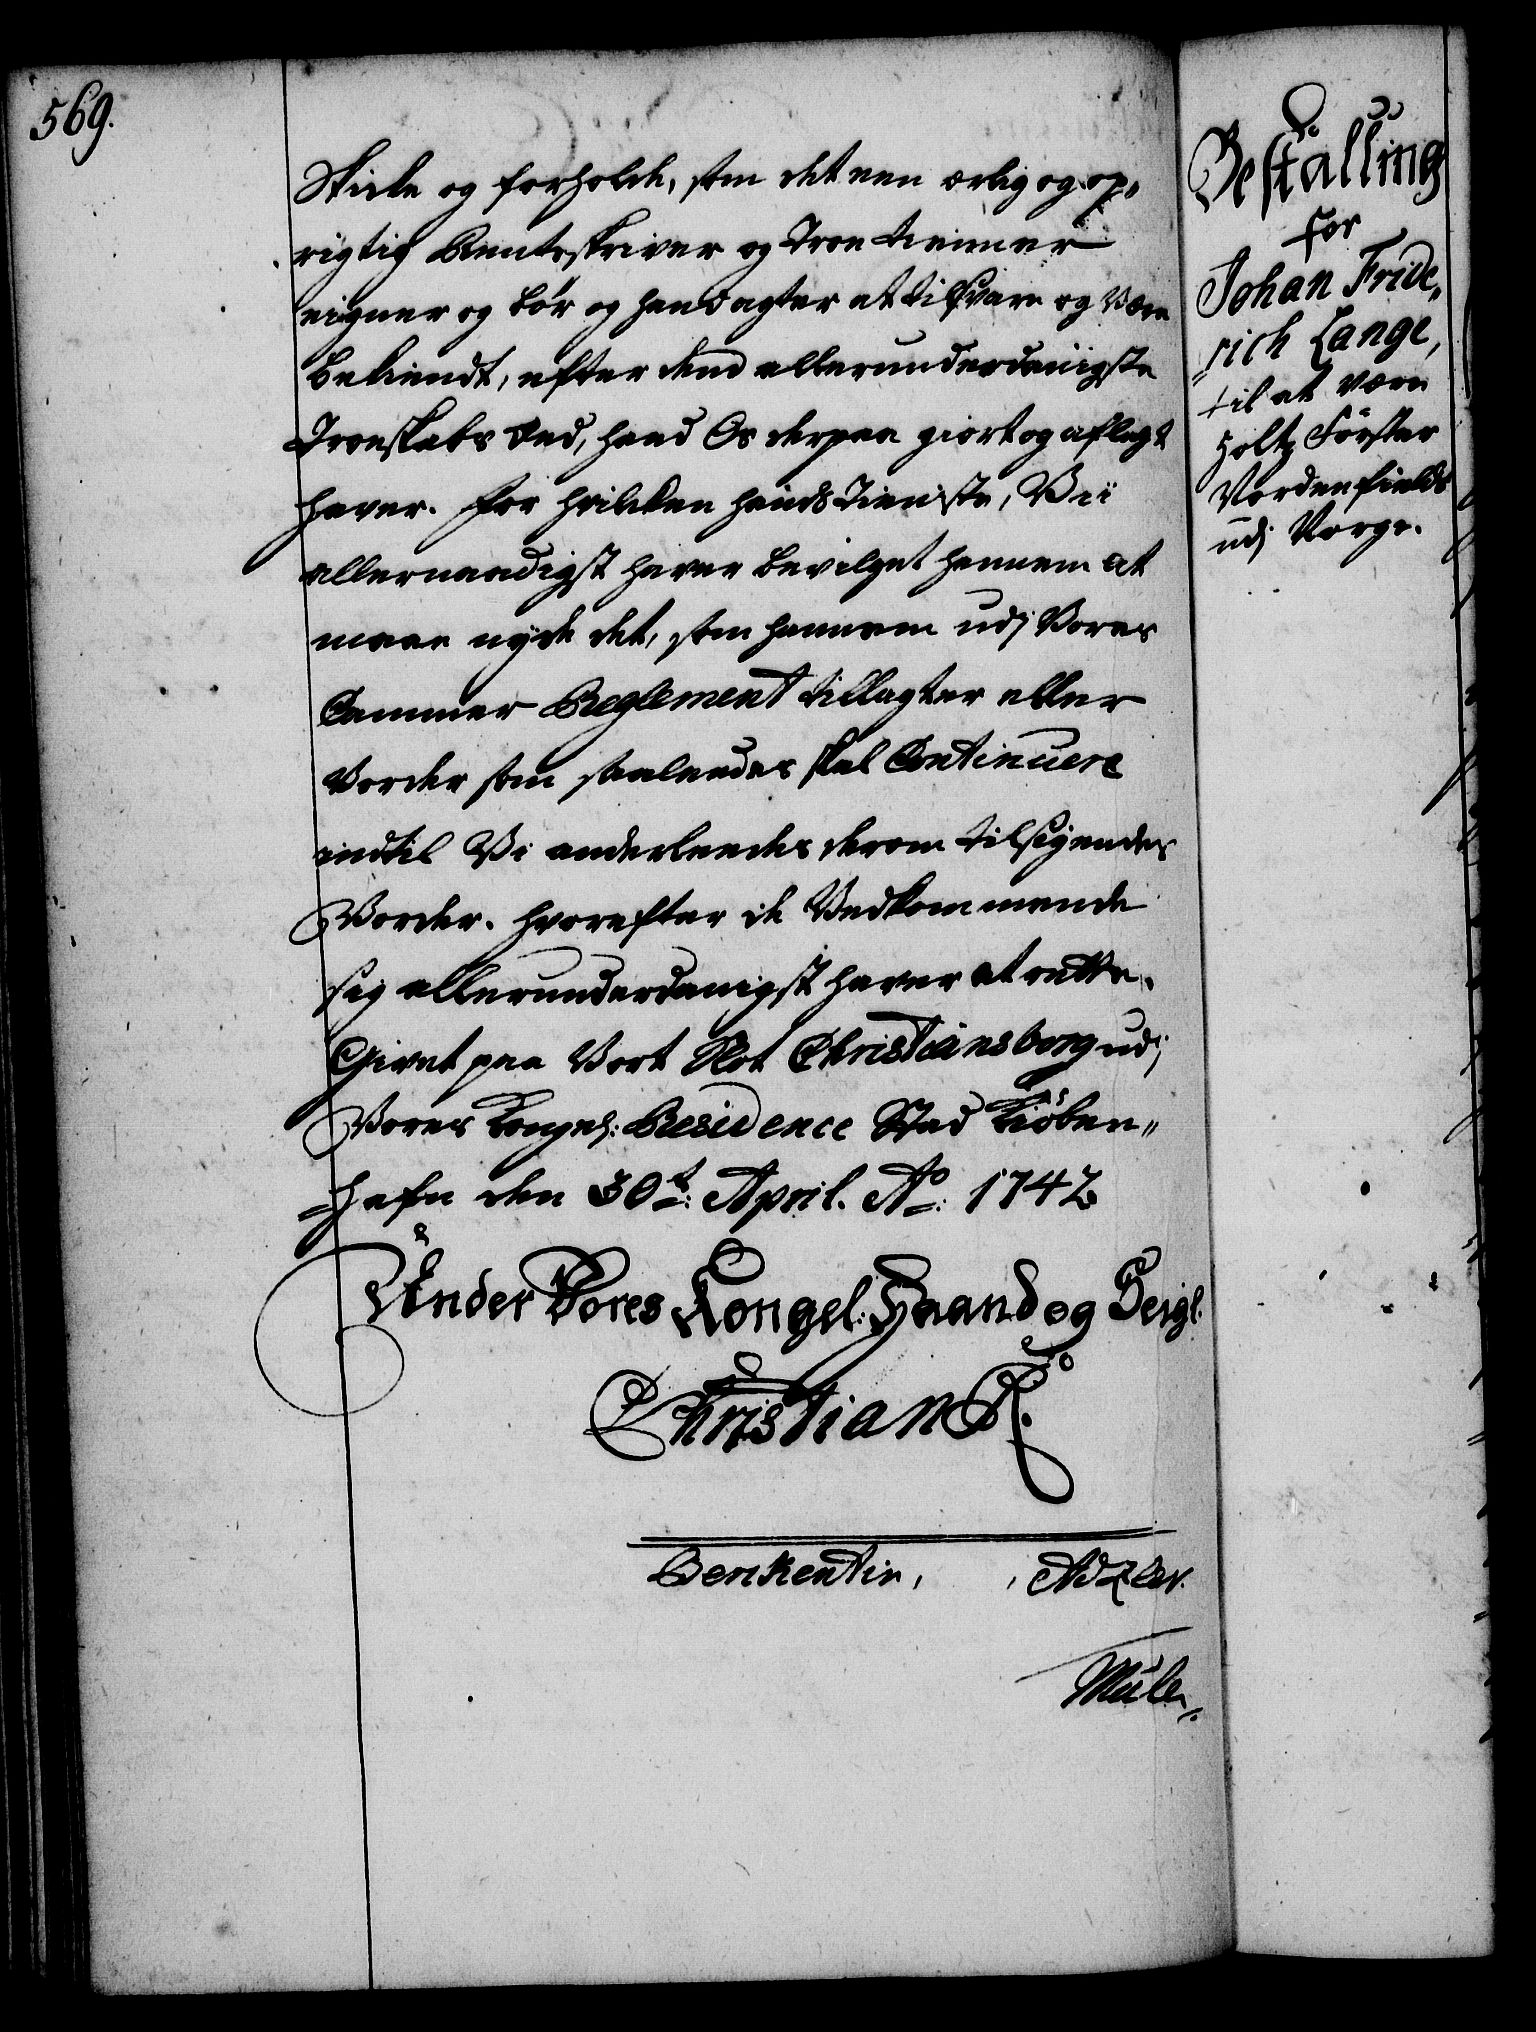 569.
Skicke og forholde, som det een ærlig og op„
rigtig Renteskriver og Troe tiener
eigner og bör og hand agter at tilsvare og være
bekiendt, efter dend allerunderdanigste
Troeskabs Eed, hand Os derpaa giort og aflagt
haver. For hvilcken hands Tieniste, Vii
allernaadigst haver bevilget hannem at
maae nyde det, som hannem udj Vores
Cammer Reglement tillagt er eller
vorder som saaleedes skal Continuere
indtil Vi anderleedes derom tilsigendes
Vorder. hvorefter de Vedkommende
sig allerunderdanigst haver at rette.
Givet paa Vort Slot Christiansborg udj
Vores Kongel: Residence Stad Kiöben„
„hafn den 30t: April. Ao: 1742
Under Vores Kongel: Haand og Seigl.
Christian R.
Berkentin, Adeler.
Mule„
Bestalling
for
Johan Fride„
„rich Lange,
til at være
Holtz Förster
Nordenfields
udj Norge.